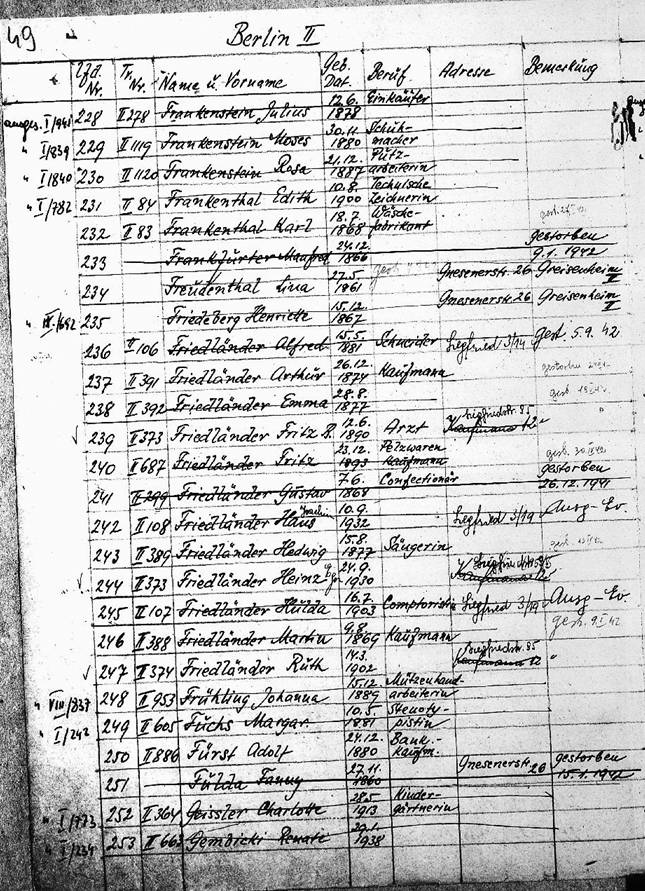 49
Berlin II
Lfd. Nr. Tr. Nr. Name u. Vorname Geb. Dat. Beruf Adresse Bemerkung
ausges. I/945 228 II 278 Frankenstein Julius 12.6. 1878 Einkäufer
" I/839 229 II 1119 Frankenstein Moses 30.11. 1880 Schuh-macher
" I/840 230 II 1120 Frankenstein Rosa 21.12. 1887 Putz-arbeiterin
" I/782 231 II 84 Frankenthal Edith 10.8. 1900 Technische Zeichnerin
232 II 83 Frankenthal Karl 18.7. 1868 Wäsche-fabrikant
233 Frankfurter Manfred 24.12. 1866 gestorben 9.1.1942
234 Freudenthal Lina 27.5. 1861 Gnesenerstr. 26 Greisenheim
235 Friedeberg Henriette 15.12. 1867 Gnesenerstr. 26 Greisenheim
236 II 106 Friedländer Alfred 15.5. 1881 Schneider Siegfried 3/19 gest. 5.9.42
237 II 391 Friedländer Arthur 26.12. 1874 Kaufmann
238 II 392 Friedländer Emma 28.8. 1877
239 II 373 Friedländer Fritz B. 12.6. 1890 Arzt Siegfriedstr. 85
240 II 687 Friedländer Fritz 23.12. 1893 Pelzwaren Kaufmann
241 II 299 Friedländer Gustav 7.6. 1868 Confectionär gestorben 26.12.1941
242 II 108 Friedländer Hans Joachim 10.9. 1932 Siegfried 3/19 Ausg-Ev.
243 II 389 Friedländer Hedwig 15.8. 1877 Säugerin
244 II 373 Friedländer Heinz 24.9. 1930
245 II 107 Friedländer Hulda 16.7. 1903 Comptoristin Siegfried 3/19 Ausg-Ev.
246 II 388 Friedländer Martin 9.8. 1869 Kaufmann
247 II 374 Friedländer Ruth 14.3. 1902 Siegfriedstr. 85
" VIII/837 248 II 953 Frühling Johanna 15.12. 1889 Mützenhand-arbeiterin
" I/242 249 II 605 Fuchs Margar. 10.5. 1881 Stenoty-pistin
250 II 886 Fürst Adolf 24.12. 1880 Bank-kaufm.
251 Fulda Fanny 27.11. 1860 Gnesenerstr. 26 gestorben 15.1.1942
" I/773 252 II 364 Geissler Charlotte 28.5. 1913 Kinder-gärtnerin
" I/234 253 Gembicki Renate 1938